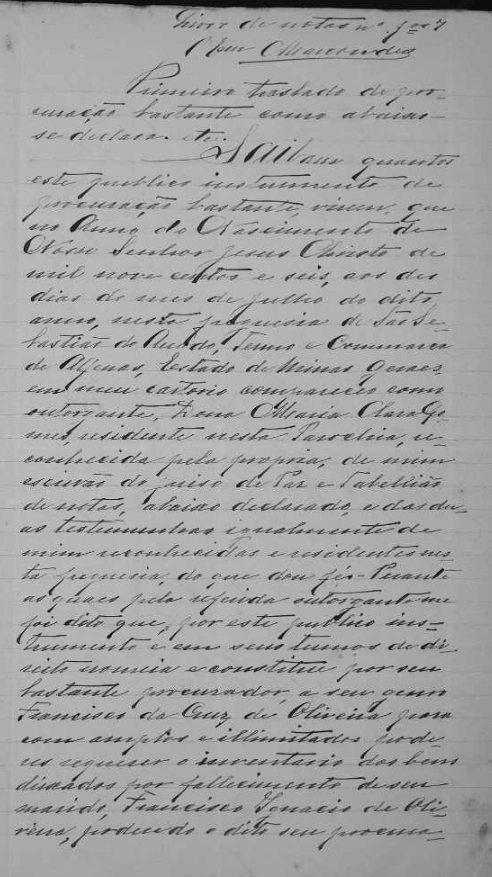 Livro de notas nº
Primeiro traslado de pro-
curação bastante como abaixo
se declara etc.
Saibam quantos
este publico instrumento de
procuração bastante, virem, que
no Anno do Nascimento de
Nosso Senhor Jesus Christo de
mil nove centos e seis, aos dez
dias do mes de julho do dito
anno, nesta freguesia de São Se-
bastião do Areado, Termo e Commarca
de Alfenas, Estado de Minas Geraes,
em meu cartorio compareceo como
outorgante, Dona Maria Clara Go-
mes, residente nesta Parochia, re-
conhecida pela propria, de mim
escrivão do juiso de Paz e Tabellião
de notas, abaixo declarado, e das du-
as testemunhas igualmente de
mim reconhecidas e residentes nes-
ta freguesia, do que dou fé. Perante
as quaes pela referida outorgante me
foi dito que, por este publico ins-
trumento e em seus termos de di-
reito nomeia e constitue por seu
bastante procurador, a seu genro
Francisco da Cruz de Oliveira para
com amplos e illimitados pode-
res requerer o inventario dos bens
deixados por fallecimento de seu
marido, Francisco Ignacio de Oli-
veira, podendo o dito seu procura-